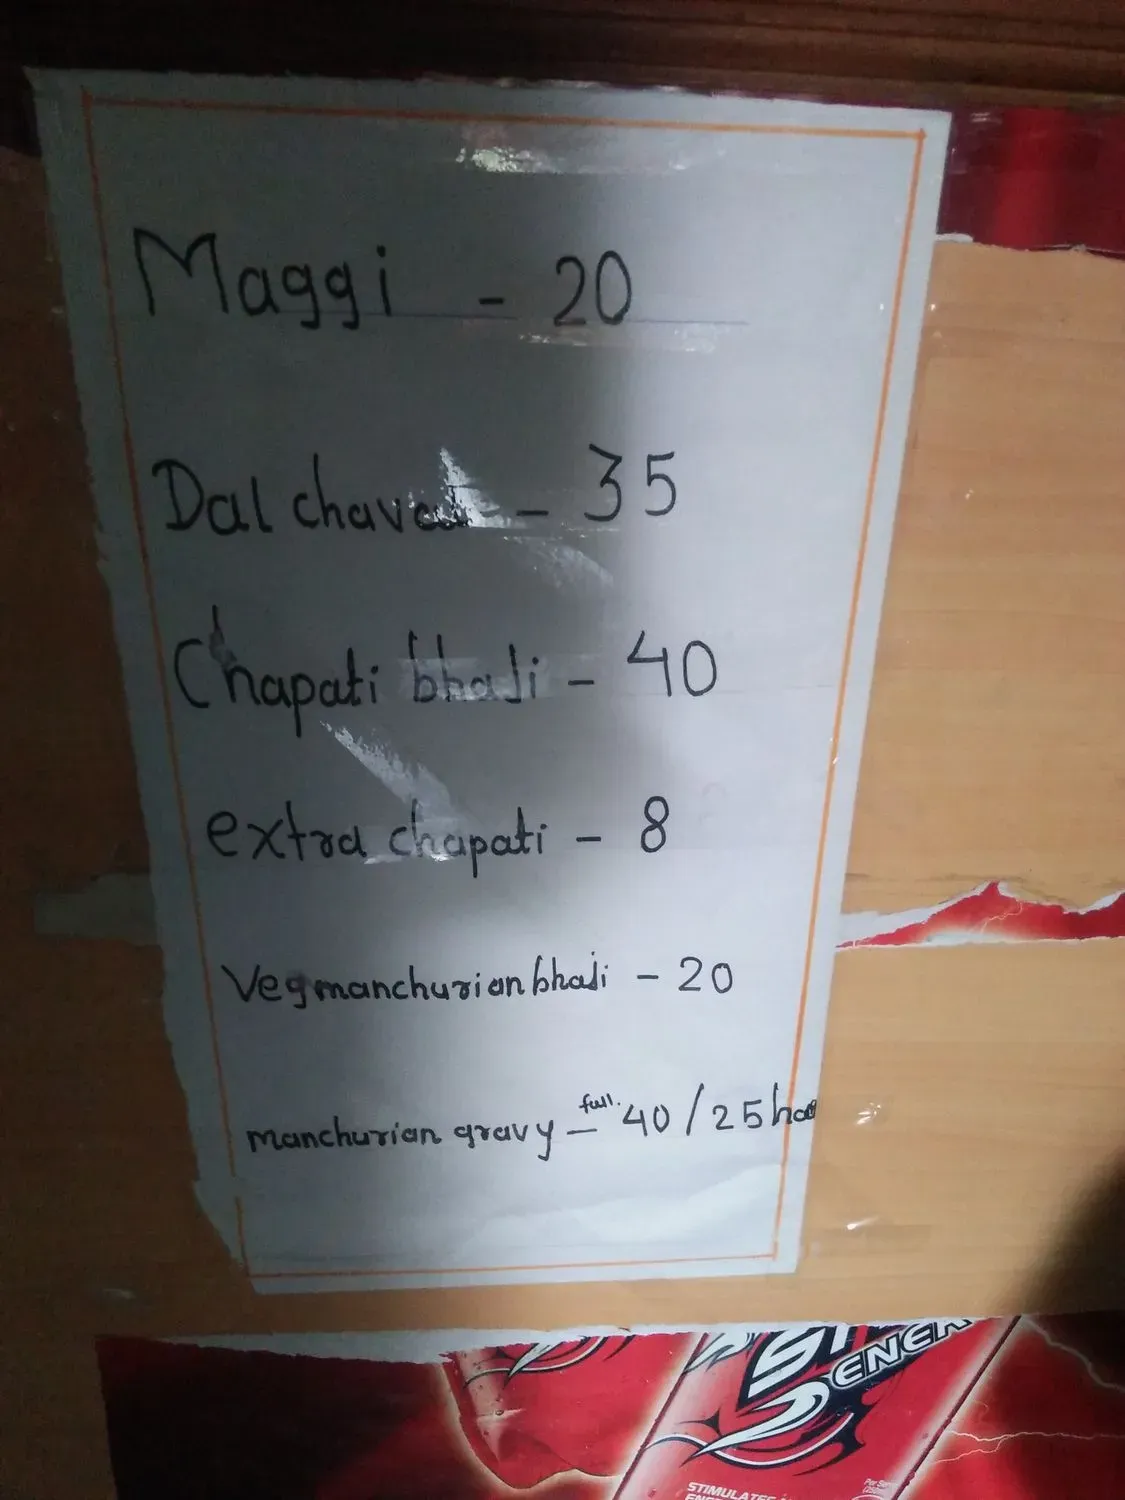 Maggi - 20
Dal chaval - 35
Chapati bhaji - 40
extra chapati - 8
Veg manchurian bhaji - 20
manchurian gravy - full. 40 / 25
ENER
STIMULATES